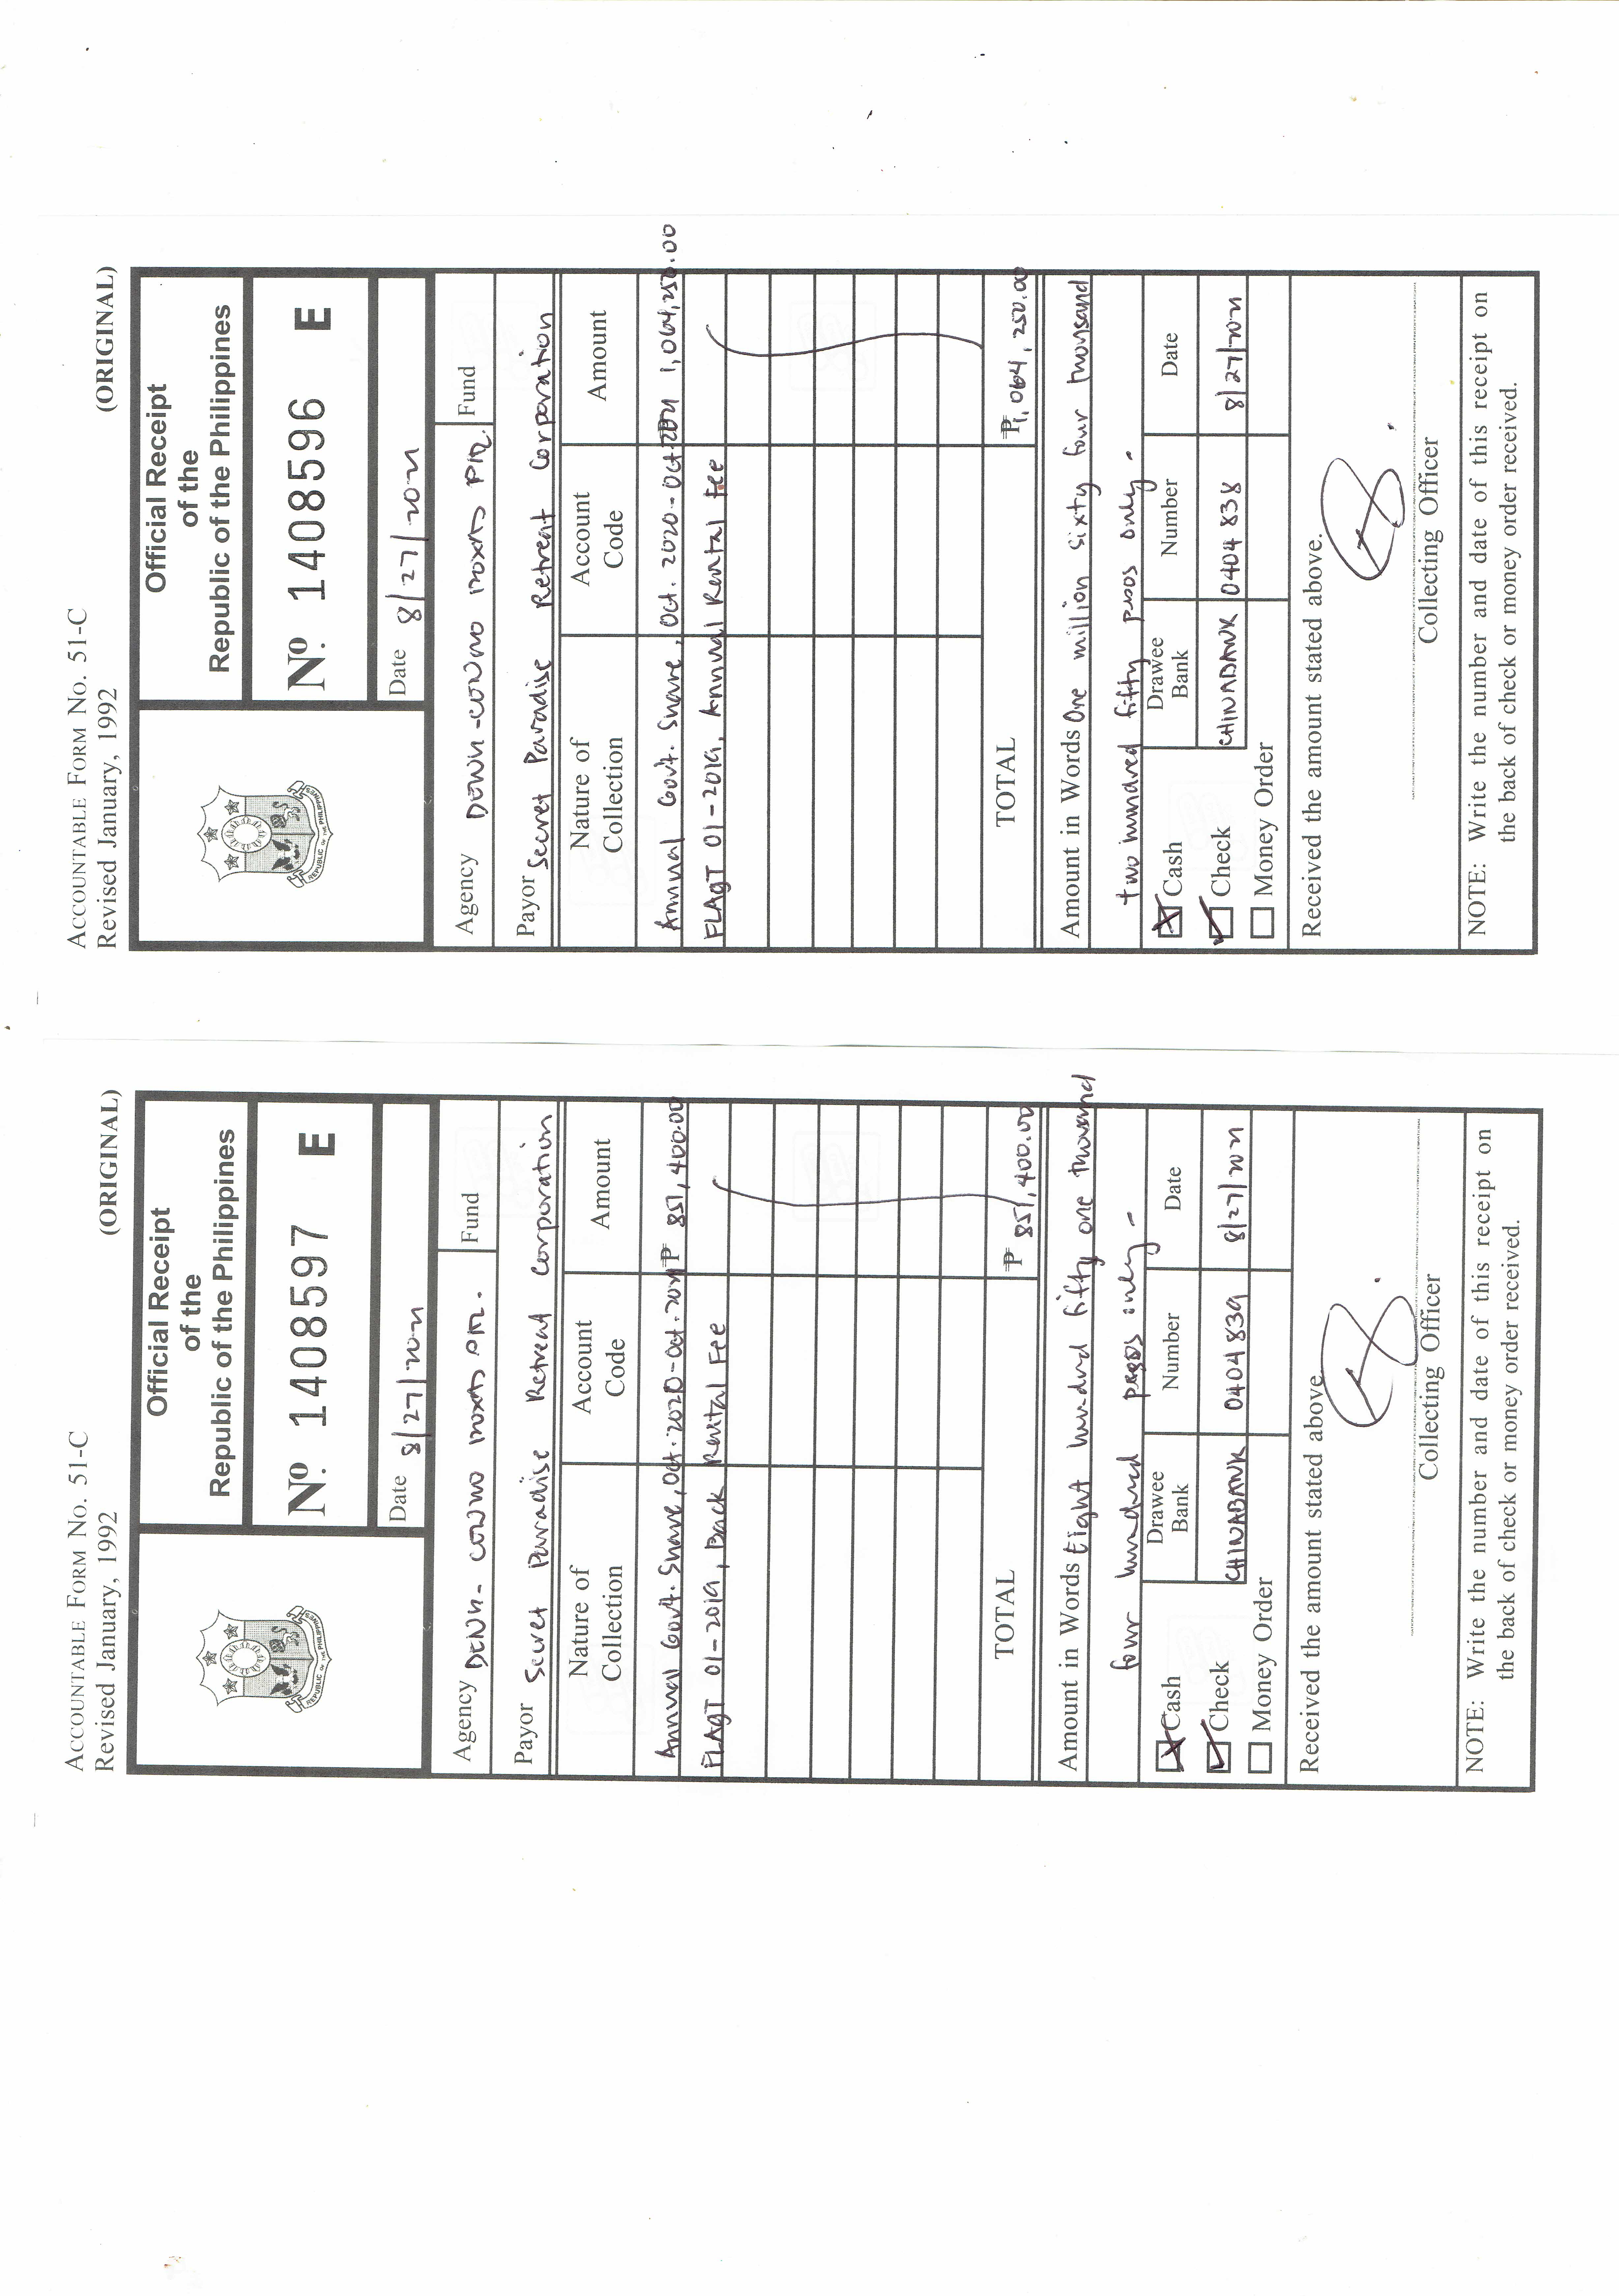 ACCOUNTABLE FORM No. 51-C
Revised January, 1992 (ORIGINAL)
Official Receipt
of the
Republic of the Philippines
REPUBLIC OF THE PHILIPPINES
Nº. 1408597 E
Date 8/27/2021
Agency DENR-
Fund
Payor Secret Paradise Retreat Corporation
Nature of Collection Account Code Amount
Annual Govt. Share, Oct. 2020-Oct. 2021 ₱ 851,400.00
FLAgT 01-2019, Back Rental Fee
TOTAL ₱ 851,400.00
Amount in Words Eight hundred fifty one thousand
four hundred pesos only -
Cash Drawee Bank Number Date
Check CHINABANK 0404839 8/27/2021
Money Order
Received the amount stated above.
Collecting Officer
NOTE: Write the number and date of this receipt on
the back of check or money order received.
ACCOUNTABLE FORM No. 51-C
Revised January, 1992 (ORIGINAL)
Official Receipt
of the
Republic of the Philippines
REPUBLIC OF THE PHILIPPINES
Nº. 1408596 E
Date 8/27/2021
Agency DENR-
Fund
Payor Secret Paradise Retreat Corporation
Nature of Collection Account Code Amount
Annual Govt. Share, Oct. 2020-Oct 2021 1,064,250.00
FLAgT 01-2019, Annual Rental Fee
TOTAL ₱1,064,250.00
Amount in Words One million sixty four thousand
two hundred fifty pesos only -
Cash Drawee Bank Number Date
Check CHINABANK 0404838 8/27/2021
Money Order
Received the amount stated above.
Collecting Officer
NOTE: Write the number and date of this receipt on
the back of check or money order received.